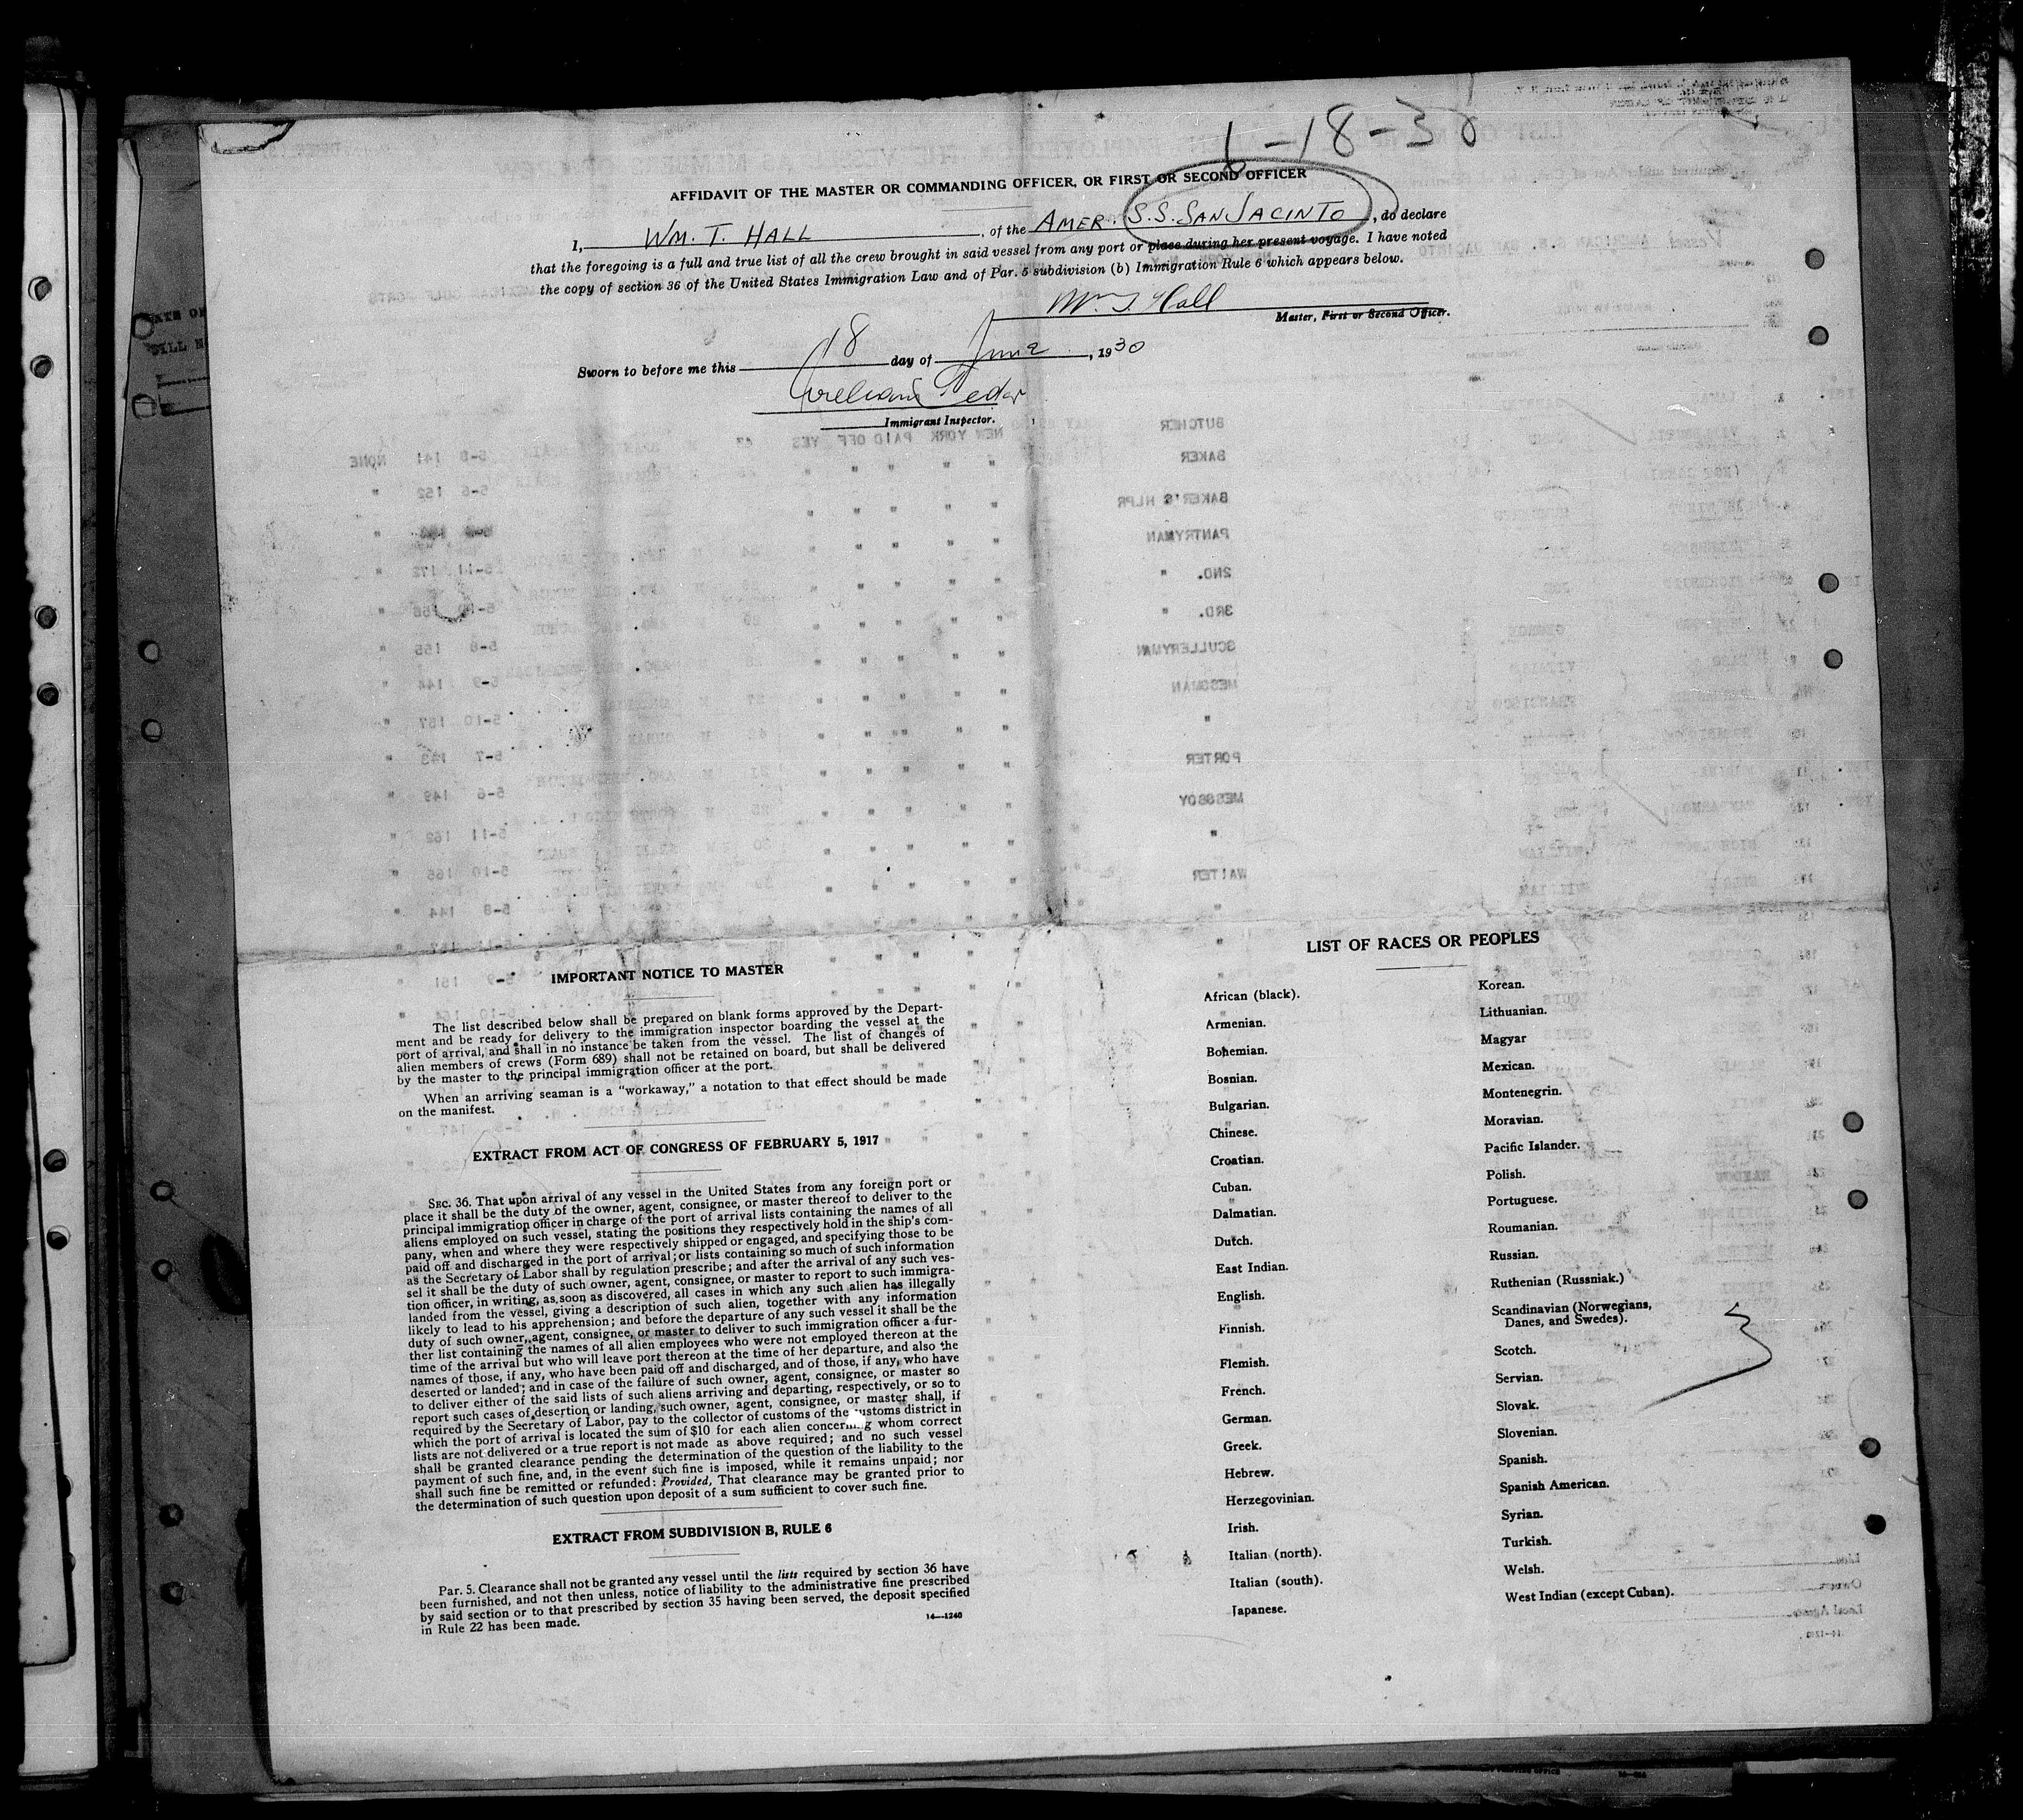 6-18-30
AFFIDAVIT OF THE MASTER OR COMMANDING OFFICER, OR FIRST OR SECOND OFFICER
I, WM. T. HALL, of the AMER. S.S. SAN JACINTO, do declare
that the foregoing is a full and true list of all the crew brought in said vessel from any port or place during her present voyage. I have noted
the copy of section 36 of the United States Immigration Law and of Par. 5 subdivision (b) Immigration Rule 6 which appears below.
Wm T. Hall
Master, First or Second Officer.
Sworn to before me this 18 day of June, 1930
William
Immigrant Inspector.
IMPORTANT NOTICE TO MASTER
The list described below shall be prepared on blank forms approved by the Depart-
ment and be ready for delivery to the immigration inspector boarding the vessel at the
port of arrival, and shall in no instance be taken from the vessel. The list of changes of
alien members of crews (Form 689) shall not be retained on board, but shall be delivered
by the master to the principal immigration officer at the port.
When an arriving seaman is a "workaway," a notation to that effect should be made
on the manifest.
EXTRACT FROM ACT OF CONGRESS OF FEBRUARY 5, 1917
SEC. 36. That upon arrival of any vessel in the United States from any foreign port or
place it shall be the duty of the owner, agent, consignee, or master thereof to deliver to the
principal immigration officer in charge of the port of arrival lists containing the names of all
aliens employed on such vessel, stating the positions they respectively hold in the ship's com-
pany, when and where they were respectively shipped or engaged, and specifying those to be
paid off and discharged in the port of arrival; or lists containing so much of such information
as the Secretary of Labor shall by regulation prescribe; and after the arrival of any such ves-
sel it shall be the duty of such owner, agent, consignee, or master to report to such immigra-
tion officer, in writing, as soon as discovered, all cases in which any such alien has illegally
landed from the vessel, giving a description of such alien, together with any information
likely to lead to his apprehension; and before the departure of any such vessel it shall be the
duty of such owner, agent, consignee, or master to deliver to such immigration officer a fur-
ther list containing the names of all alien employees who were not employed thereon at the
time of the arrival but who will leave port thereon at the time of her departure, and also the
names of those, if any, who have been paid off and discharged, and of those, if any, who have
deserted or landed; and in case of the failure of such owner, agent, consignee, or master so
to deliver either of the said lists of such aliens arriving and departing, respectively, or so to
report such cases of desertion or landing, such owner, agent, consignee, or master shall, if
required by the Secretary of Labor, pay to the collector of customs of the customs district in
which the port of arrival is located the sum of $10 for each alien concerning whom correct
lists are not delivered or a true report is not made as above required; and no such vessel
shall be granted clearance pending the determination of the question of the liability to the
payment of such fine, and, in the event such fine is imposed, while it remains unpaid; nor
shall such fine be remitted or refunded: Provided, That clearance may be granted prior to
the determination of such question upon deposit of a sum sufficient to cover such fine.
EXTRACT FROM SUBDIVISION B, RULE 6
Par. 5. Clearance shall not be granted any vessel until the lists required by section 36 have
been furnished, and not then unless, notice of liability to the administrative fine prescribed
by said section or to that prescribed by section 35 having been served, the deposit specified
in Rule 22 has been made.
14—1240
LIST OF RACES OR PEOPLES
African (black).
Armenian.
Bohemian.
Bosnian.
Bulgarian.
Chinese.
Croatian.
Cuban.
Dalmatian.
Dutch.
East Indian.
English.
Finnish.
Flemish.
French.
German.
Greek.
Hebrew.
Herzegovinian.
Irish.
Italian (north).
Italian (south).
Japanese.
Korean.
Lithuanian.
Magyar
Mexican.
Montenegrin.
Moravian.
Pacific Islander.
Polish.
Portuguese.
Roumanian.
Russian.
Ruthenian (Russniak.)
Scandinavian (Norwegians,
Danes, and Swedes).
Scotch.
Servian.
Slovak.
Slovenian.
Spanish.
Spanish American.
Syrian.
Turkish.
Welsh.
West Indian (except Cuban).